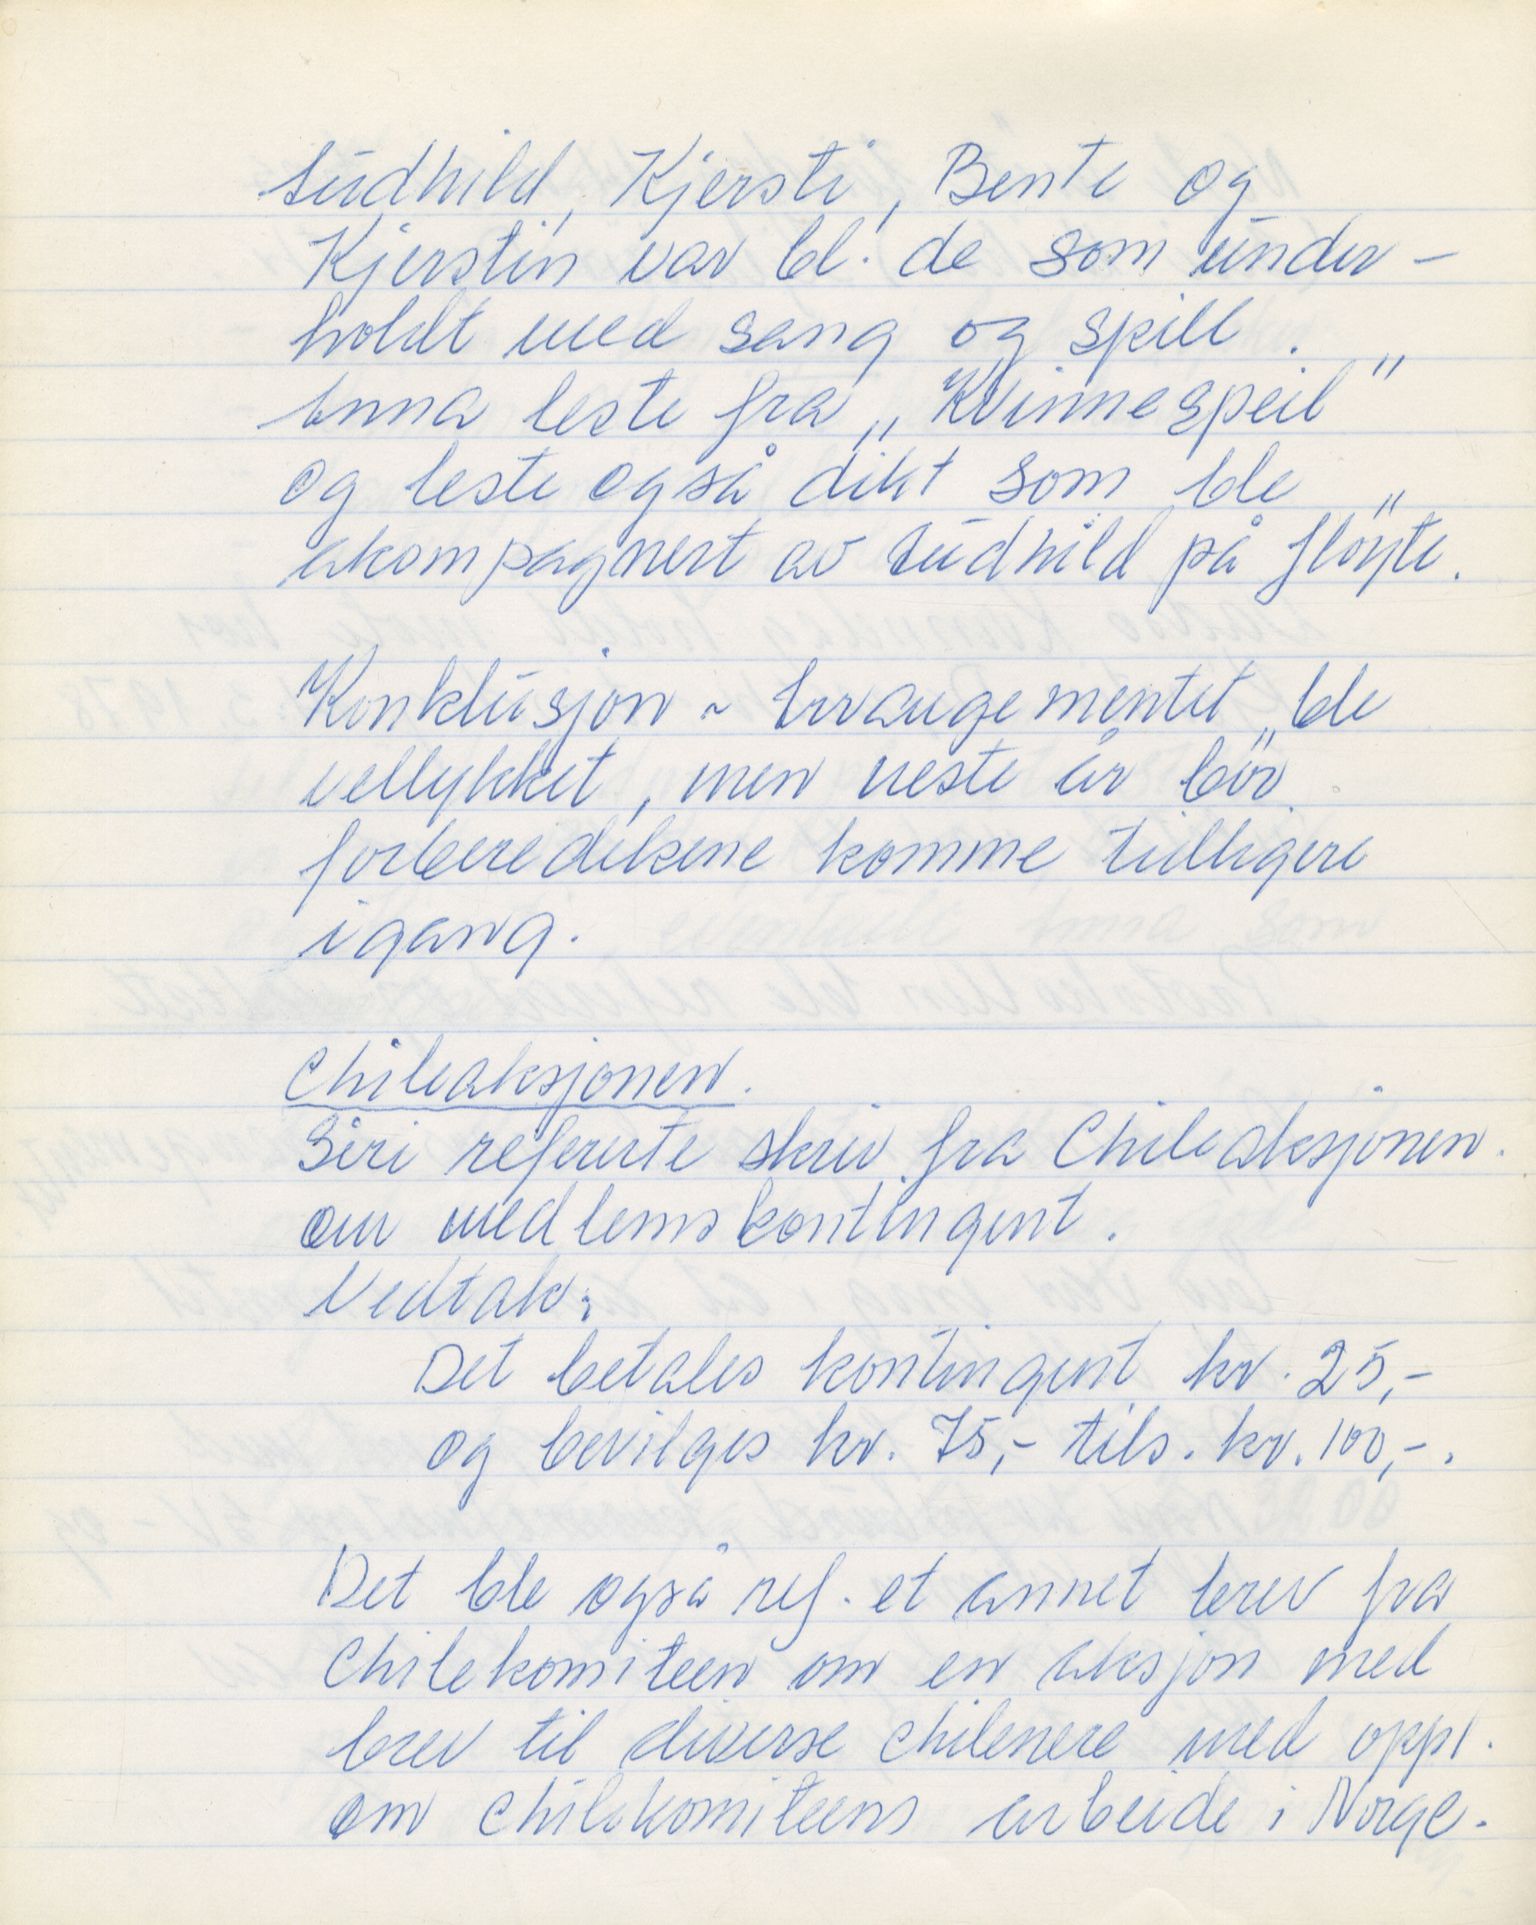 Audhild, Kjersti, Bente og
Kjerstin var bl. de som under-
holdt med sang og spill.
Anna leste fra „Kvinnespeil"
og leste også dikt som ble
akompagnert av Audhild på fløyte.
Konklusjon ~ Arrangementet ble
vellykket, men neste år bør
forberedelsene komme tidligere
igang.
Chileaksjonen.
Siri refererte skriv fra Chileaksjonen
om medlemskontingent.
Vedtak:
Det betales kontingent kr. 25,-
og bevilges kr. 75,- tils. kr. 100,-.
Det ble også ref. et annet brev fra
Chilekomiteen om en aksjon med
brev til diverse chilenere med oppl.
om chilekomiteens arbeide i Norge.